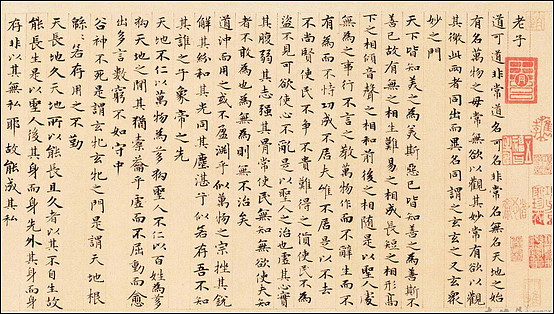 老子
道可道非常道名可名非常名無名天地之始
有名萬物之母常無欲以觀其妙常有欲以觀
其徼此兩者同出而異名同謂之玄玄之又玄衆
妙之門
天下皆知美之為美斯惡已皆知善之為善斯不
善已故有無之相生難易之相成長短之相形高
下之相傾音聲之相和前後之相隨是以聖人處
無為之事行不言之教萬物作而不辭生而不
有為而不恃功成不居夫惟不居是以不去
不尚賢使民不爭不貴難得之貨使民不為
盜不見可欲使心不亂是以聖人之治也虛其心實
其腹弱其志強其骨常使民無知無欲使夫知
者不敢為也為無為則無不治矣
道沖而用之或不盈淵乎似萬物之宗挫其銳
解其紛和其光同其塵湛乎似若存吾不知
其誰之子象帝之先
天地不仁以萬物為芻狗聖人不仁以百姓為芻
狗天地之間其猶橐籥乎虛而不屈動而愈
出多言數窮不如守中
谷神不死是謂玄牝玄牝之門是謂天地根
緜、若存用之不勤
天長地久天地所以能長且久者以其不自生故
能長生是以聖人後其身而身先外其身而身
存非以其無私耶故能成其私